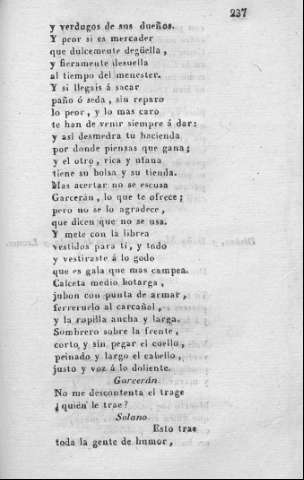 237
y verdugos de sus dueños.
Y peor si es mercader
que dulcemente degüella,
y fieramente desuella
al tiempo del menester.
Y si llegais á sacar
paño ó seda, sin reparo
lo peor, y lo mas caro
te han de venir siempre á dar:
y asi desmedra tu hacienda
por donde piensas que gana;
y el otro, rica y ufana
tiene su bolsa y su tienda.
Mas acertar no se escusa
Garcerán, lo que te ofrece;
pero no se lo agradece,
que dicen que no se usa.
Y mete con la librea
vestidos para tí, y todo
y vestiraste á lo godo
que es gala que mas campea.
Calceta medio botarga,
jubon con punta de armar,
ferreruelo al carcañal,
y la rapilla ancha y larga.
Sombrero sobre la frente,
corto y sin pegar el cuello,
peinado y largo el cabello,
justo y voz á lo doliente.
Garcerán.
No me descontenta el trage
¿quién le trae?
Solano.
Esto trae
toda la gente de humor,